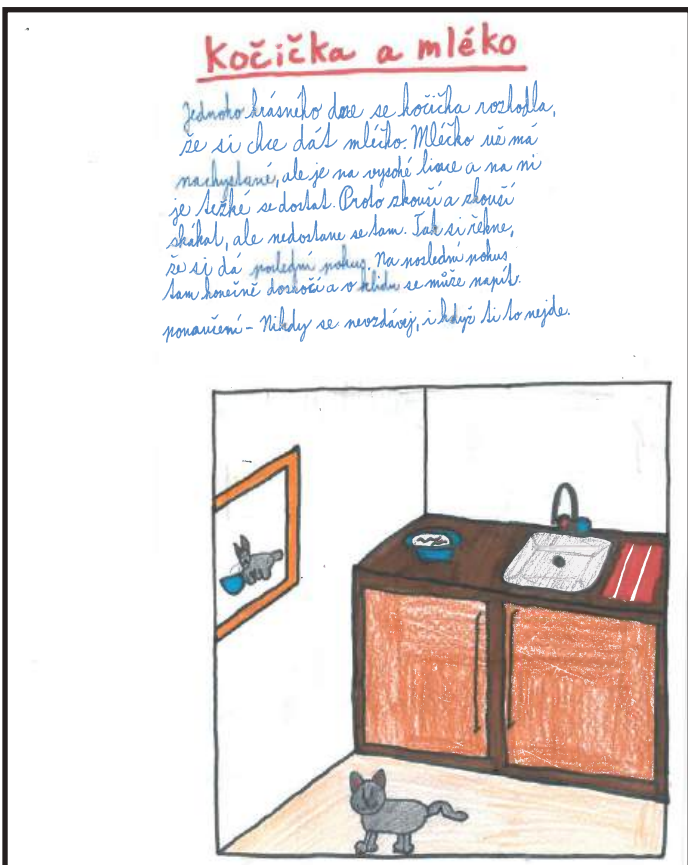 Kočička a mléko
Jednoho krásného dne se kočička rozhodla,
že si chce dát mléčko. Mléčko už má
nachystané, ale je na vysoké lince a na ni
je těžké se dostat. Proto zkouší a zkouší
skákat, ale nedostane se tam. Tak si řekne,
že si dá poslední pokus. Na poslední pokus
tam konečně doskočí a v klidu se může napít.
ponaučení - Nikdy se nevzdávej, i když ti to nejde.